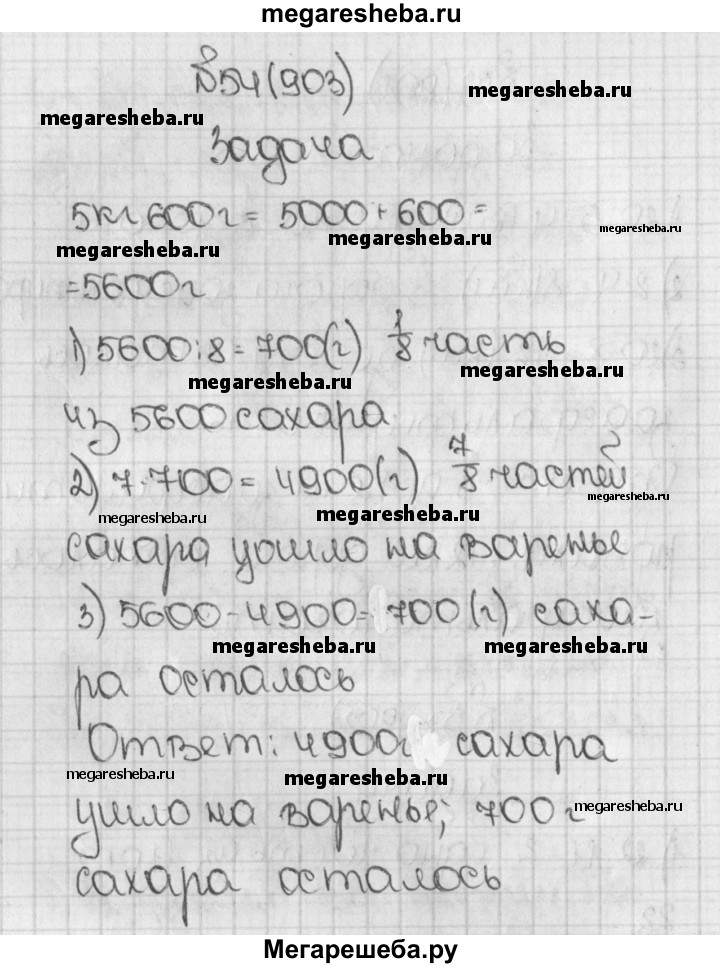 megaresheba.ru
№54(903)
megaresheba.ru
megaresheba.ru
Задача
5кг 600г = 5000 + 600 =
megaresheba.ru
megaresheba.ru
megaresheba.ru
=5600г
1) 5600:8=700(г) 1/8 часть
megaresheba.ru
megaresheba.ru
из 5600 сахара
2) 7·700=4900(г) 7/8 частей
megaresheba.ru
megaresheba.ru
megaresheba.ru
сахара уошло на варенье
3) 5600-4900=700(г) саха-
megaresheba.ru
megaresheba.ru
ра осталось
Ответ: 4900г сахара
megaresheba.ru
megaresheba.ru
ушло на варенье; 700г
megaresheba.ru
сахара осталось
Мегарешеба.ру